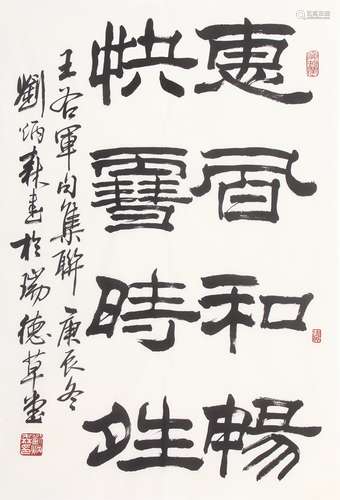 惠風和暢
快雪時夝
王右軍句集聯 庚辰冬
劉炳森書於瑞德草堂